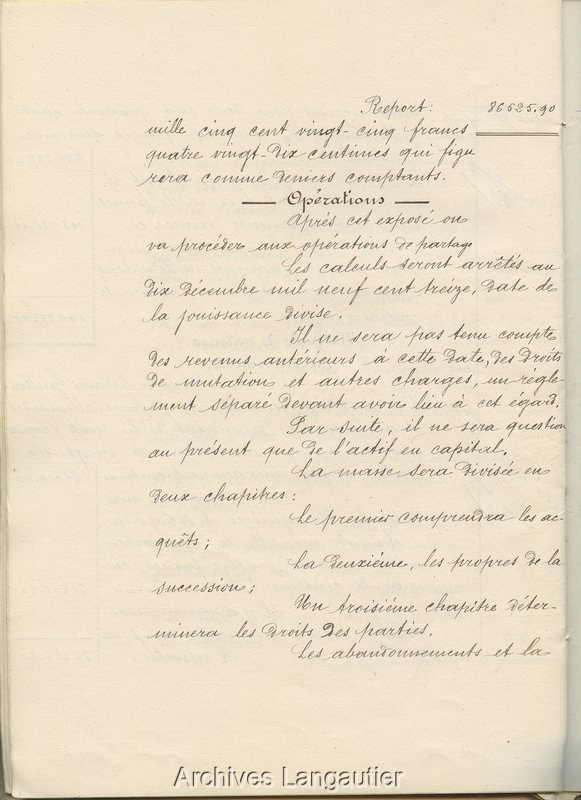 Report: 86525.90
mille cinq cent vingt-cinq francs
quatre vingt-dix centimes qui figu
rera comme deniers comptants.
— Opérations —
Après cet exposé on
va procéder aux opérations de partage
Les calculs seront arrêtés au
dix décembre mil neuf cent treize, date de
la jouissance divise.
Il ne sera pas tenu compte
des revenus antérieurs à cette date, des droits
de mutation et autres charges, un règle-
ment séparé devant avoir lieu à cet égard.
Par suite, il ne sera question
au présent que de l'actif en capital.
La masse sera divisée en
deux chapitres:
Le premier comprendra les ac-
quêts;
La deuxième, les propres de la
succession;
Un troisième chapitre déter-
minera les droits des parties.
Les abandonnements et la
Archives Langautier